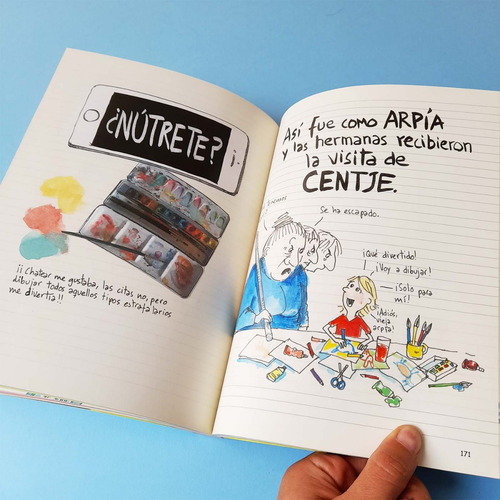 ¿NÚTRETE?
¡¡ Chatear me gustaba, las citas no, pero
dibujar todos aquellos tipos estrafalarios
me divertía !!
Así fue como ARPÍA
y las hermanas recibieron
la visita de
CENTJE.
Se ha escapado.
¡Qué divertido!
¡Voy a dibujar!
¡Solo para
mí!
¡Adiós,
vieja
arpía!
171